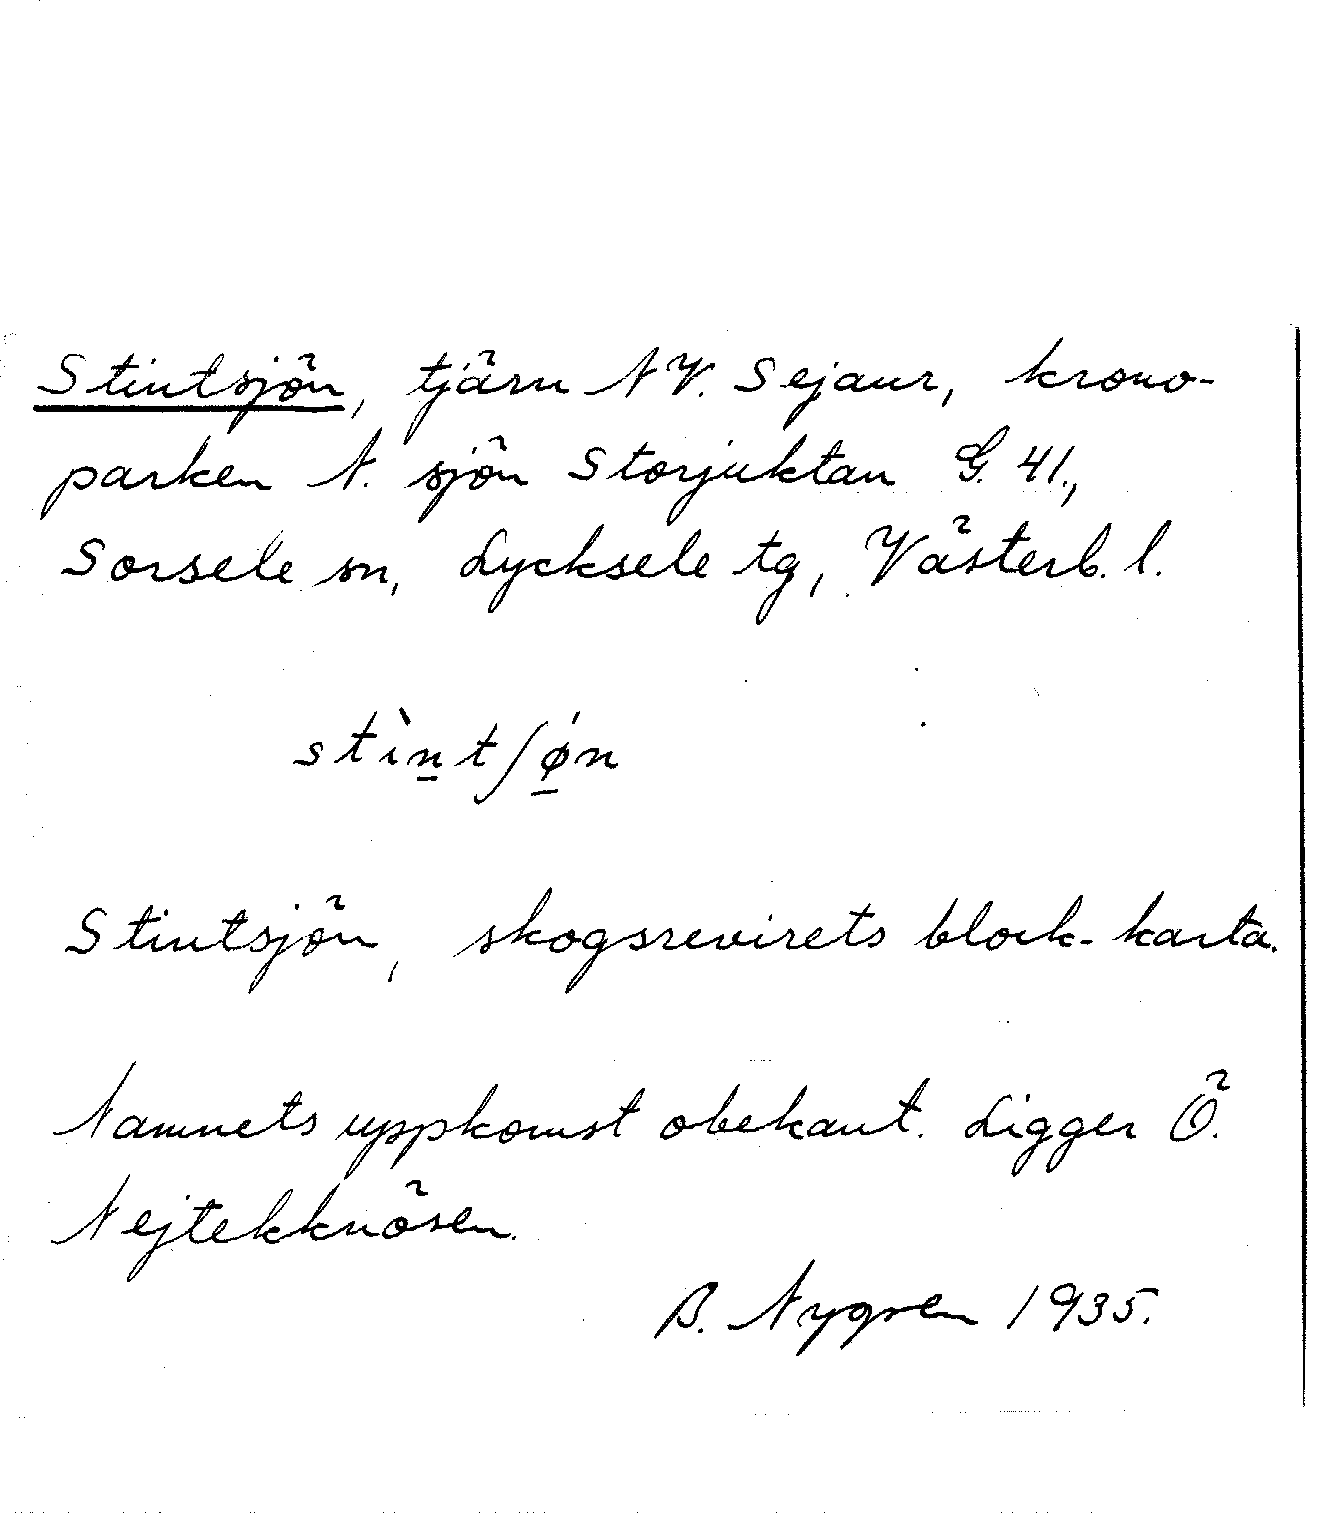 Stintsjön, tjärn NV. Sejaur, krono-
parken N. sjön Storjuktan G. 41.,
Sorsele sn, Lycksele tg, Västerb. l.
stìn̲tʃǿ̲n
Stintsjön, skogsrevirets block-karta.
Namnets uppkomst obekant. Ligger Ö.
Nejtekknösen.
B. Nygren 1935.